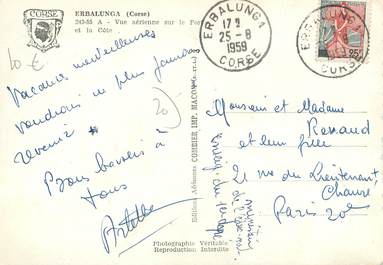 CORSE
ERBALUNGA (Corse)
243-55 A - Vue aérienne sur le Port
et la Côte
10 €
20
ERBALUNGA
17 H
25-8
1959
CORSE
ERBALUNGA
CORSE
25F
Vacances merveilleuses
voudrions ne plus jamais
revenir
Bons baisers à
tous
Editions Aériennes COMBIER IMP. MACON
Monsieur et Madame
Renaud
et leur fille
2 rue du Lieutenant
Chauré
Paris 20e
Photographie Véritable
Reproduction Interdite